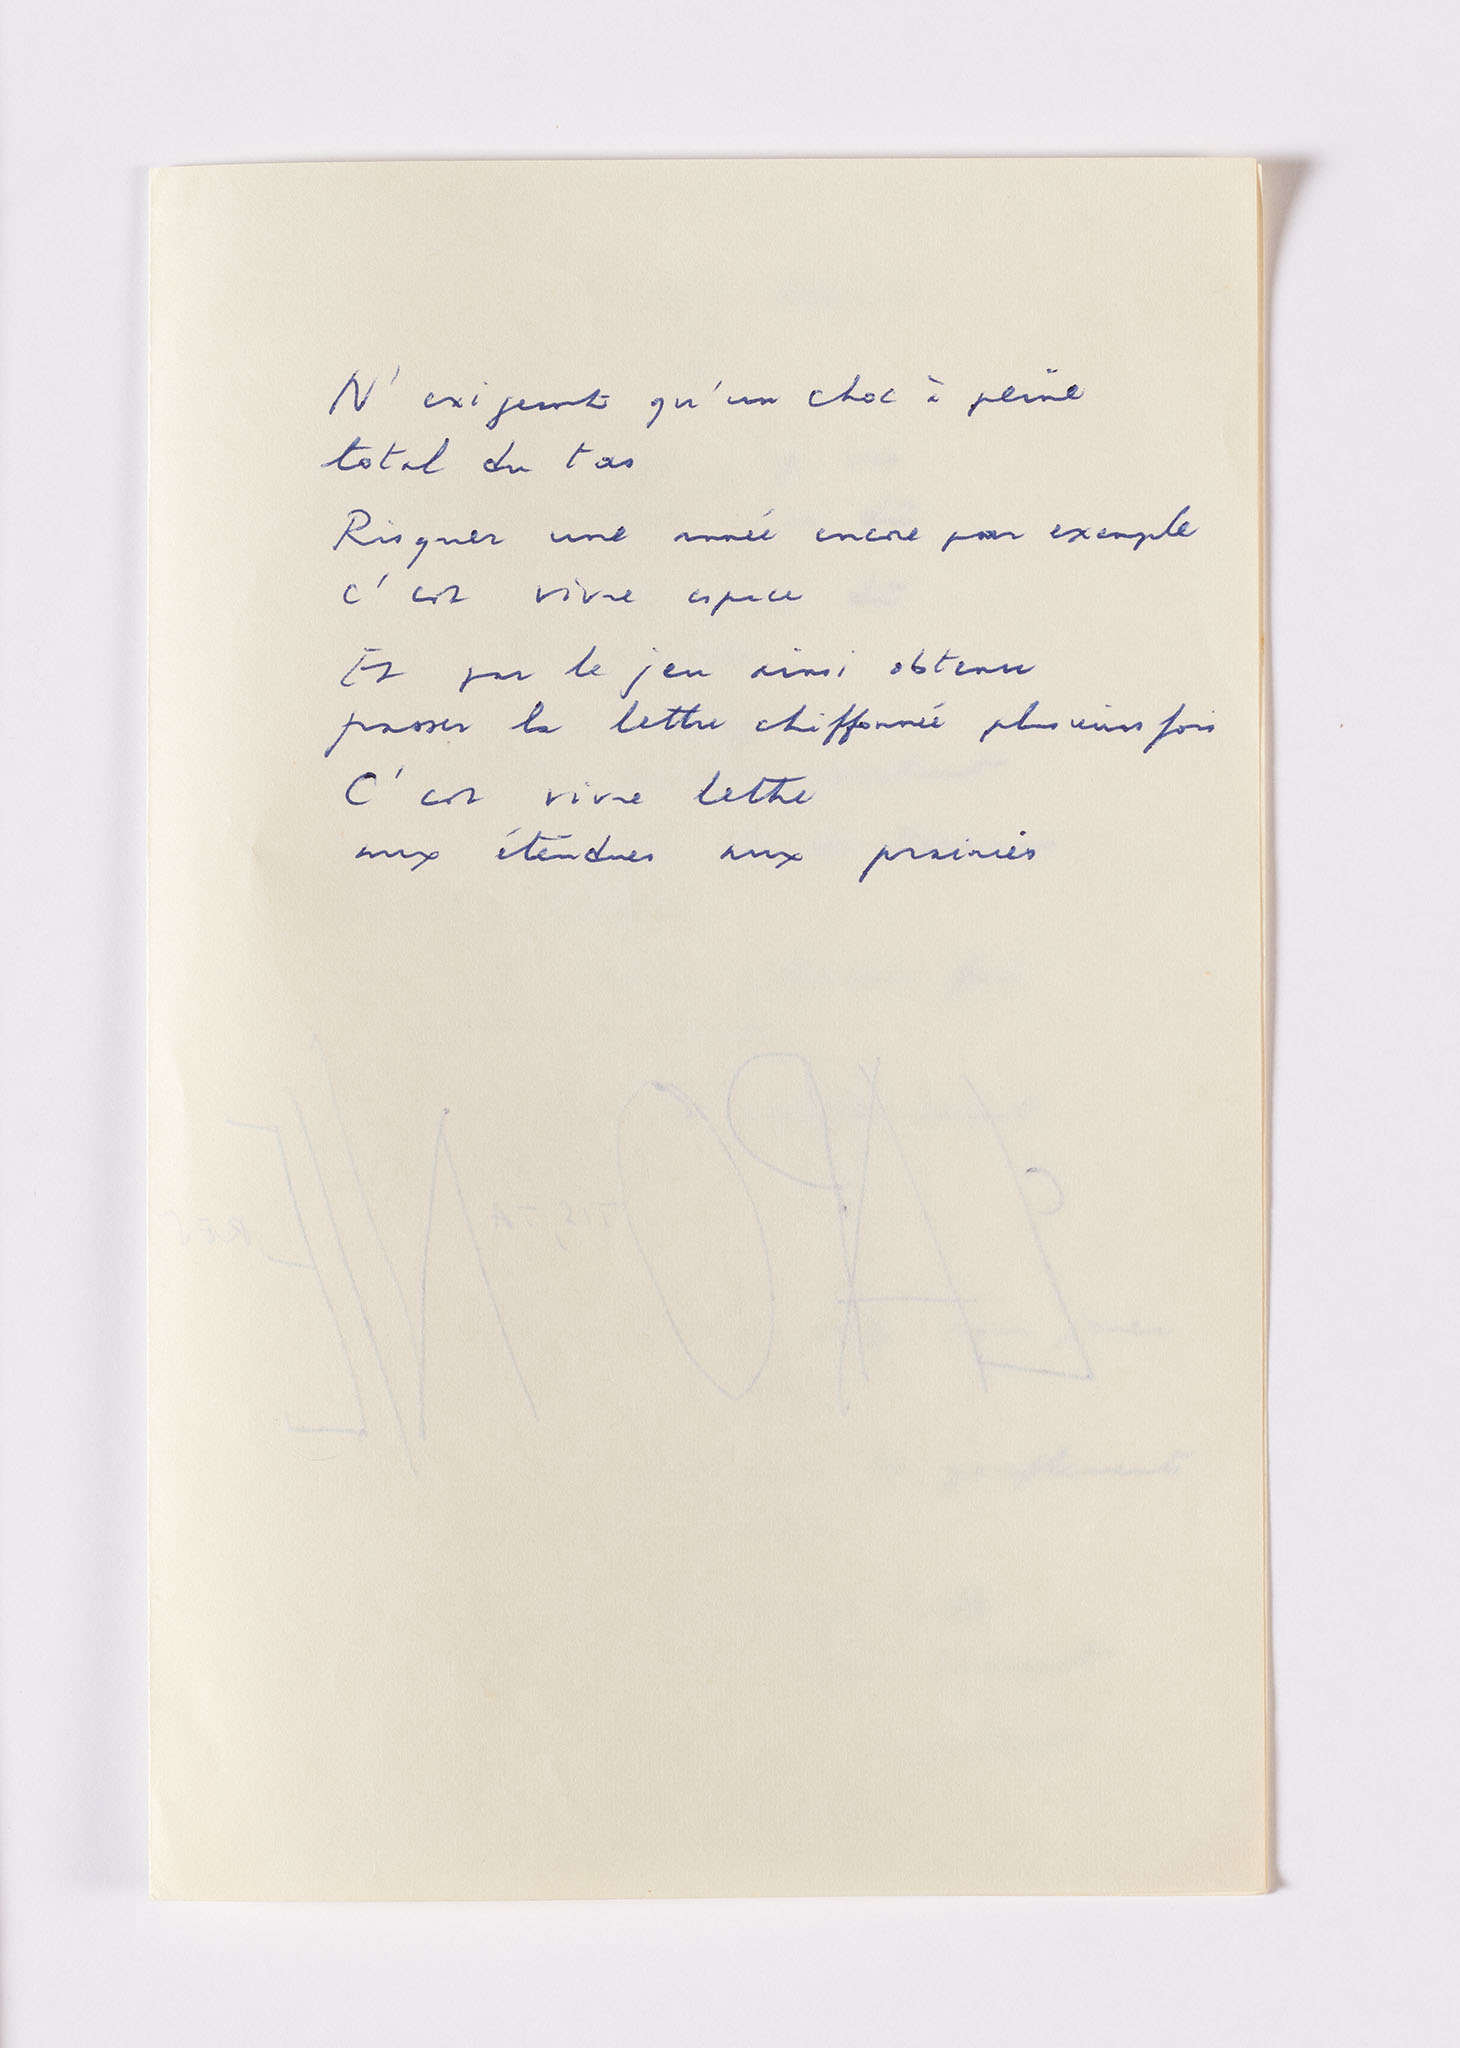 N'exigeant qu'un choc à peine
total du tas
Risquer une année encore par exemple
C'est vivre espace
Et par le jeu ainsi obtenu
passer la lettre chiffonnée plusieurs fois
C'est vivre lettre
aux étendues aux prairies